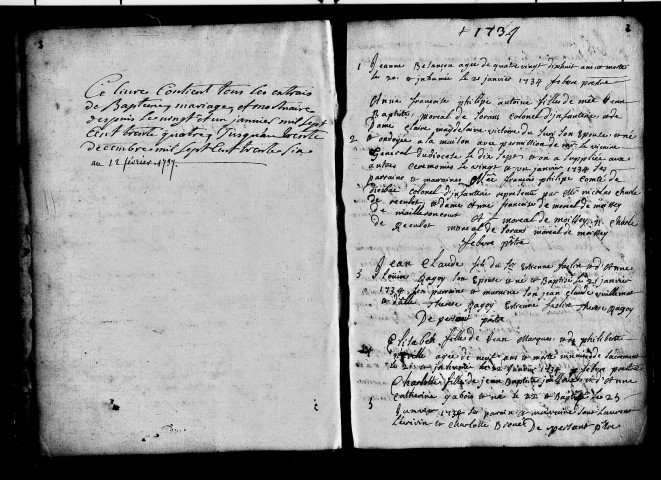 Ce livre Contient tous les extrais
de Baptemes, mariages, et mortuaires
despuis le vingt et un janvier mil sept
Cent trente quatre, jusquau trente
decembre mil sept Cent trente six
au 12 février 1737.
+ 1734
1 Jeanne Belancon agée de quatre vingt dixhuit ans et morte
le 20. et inhumée le 21 janvier 1734 febvre pretre
Anne françoise philipe antoine filles de mre Jean
Baptiste moreal de sorans colonel d'infanterie et de
dame claire magdelaine victoire du son epouse et né
2 et ondoyée a la maison avec permission de mr le vicaire
General du diocèse le dix sept et on a suppleée aux
autres ceremonies le vingt et un janvier 1734 ses
parrains et maraines mre françois philipe comte de
colonel d'infanterie representé par mr nicolas charle
de reculot et dame anne françoise de moreal de moissey
de vaillesoncourt moreal de moissey charle
de Reculot moreal de sorans moreal de moissey
febvre pretre
3 Jean Claude fils du sr Estienne faslier et d'anne
Ragoy son epouse et né et Baptisé le 21 janvier
1734 son parrain et maraine son jean claude vuillemot
et dlle therese Ragoy Estienne faslier therese Ragoy
De persant pretre
Elisabeth fille de Jean marques et de philiberte
agée de neuf ans et morte munie de sacrement
le 21 et inhumée le 22 janvier 1734 febvre pretre
Charlotte fille de jean Baptiste et d'anne
catherine gabois et né le 22 et Baptisé le 23
5 Janvier 1734 ses parain et maraine sont Laurent
et charlotte Brouet De persant pretre